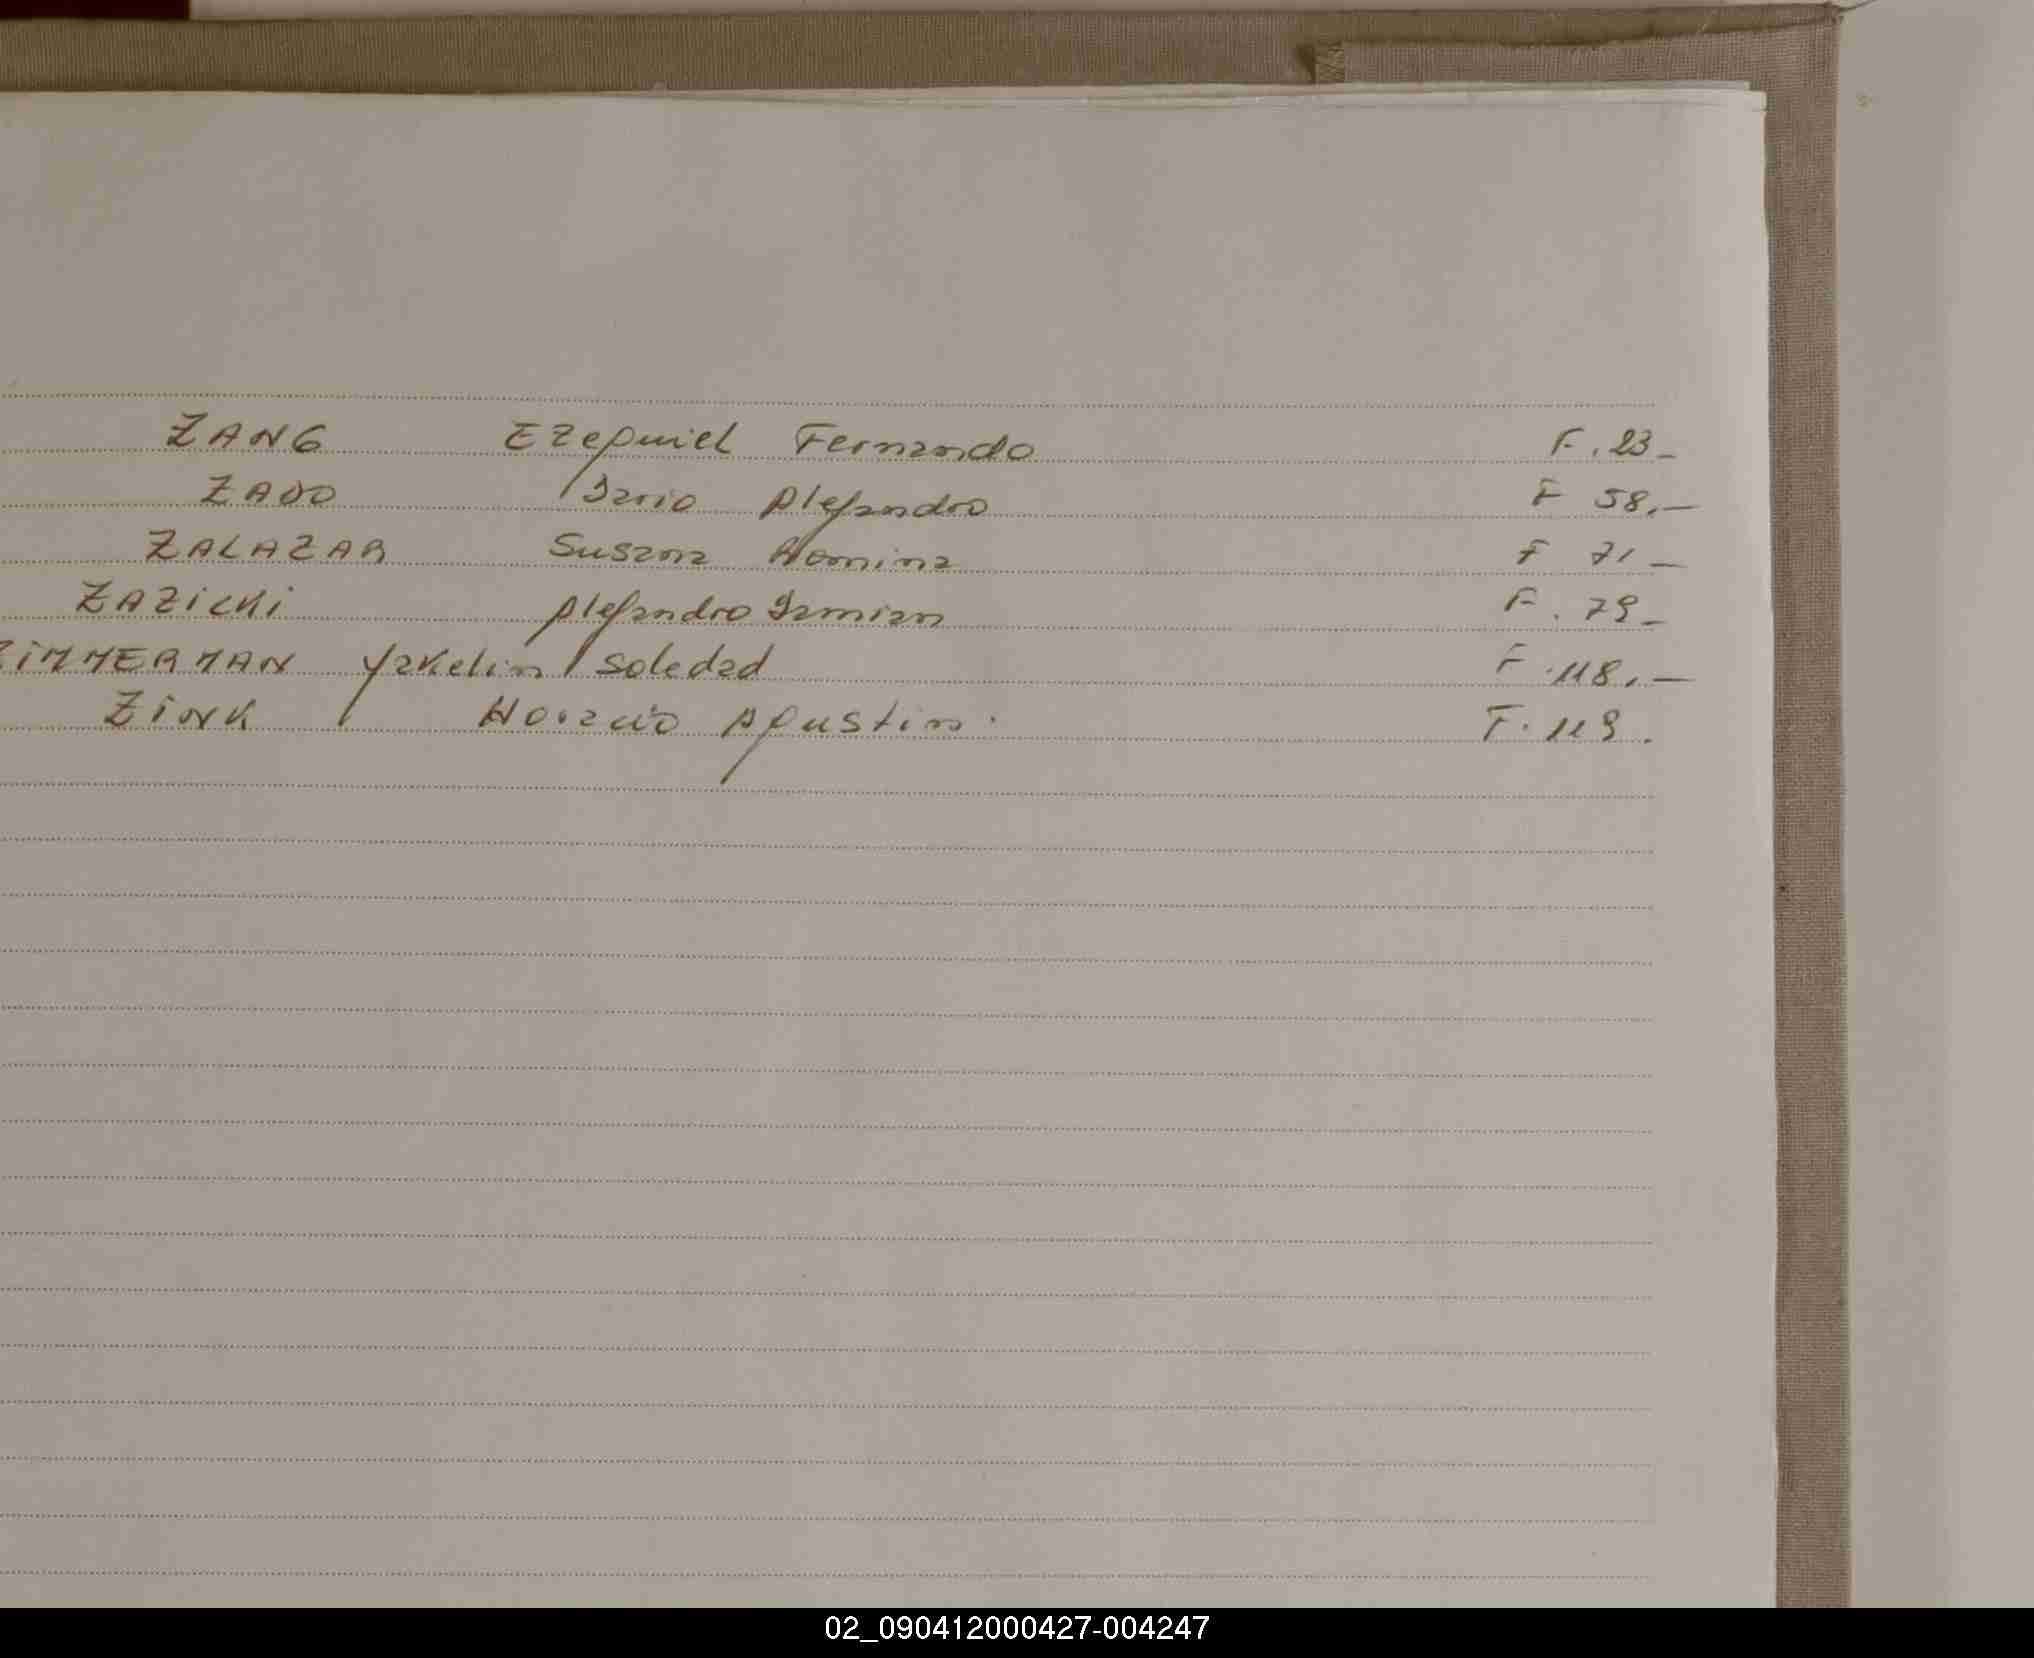 ZANG Ezequiel Fernando F. 23-
ZADO Dario Alejandro F 58.-
ZALAZAR Susana Romina F 71-
ZAZICKI Alejandro Damian F. 79-
ZIMMERMAN Yakelin Soledad F. 118.-
ZINK Horacio Agustin. F. 119.
02_090412000427-004247